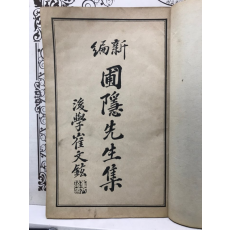 新編
圃隱先生集
後學崔文鉉